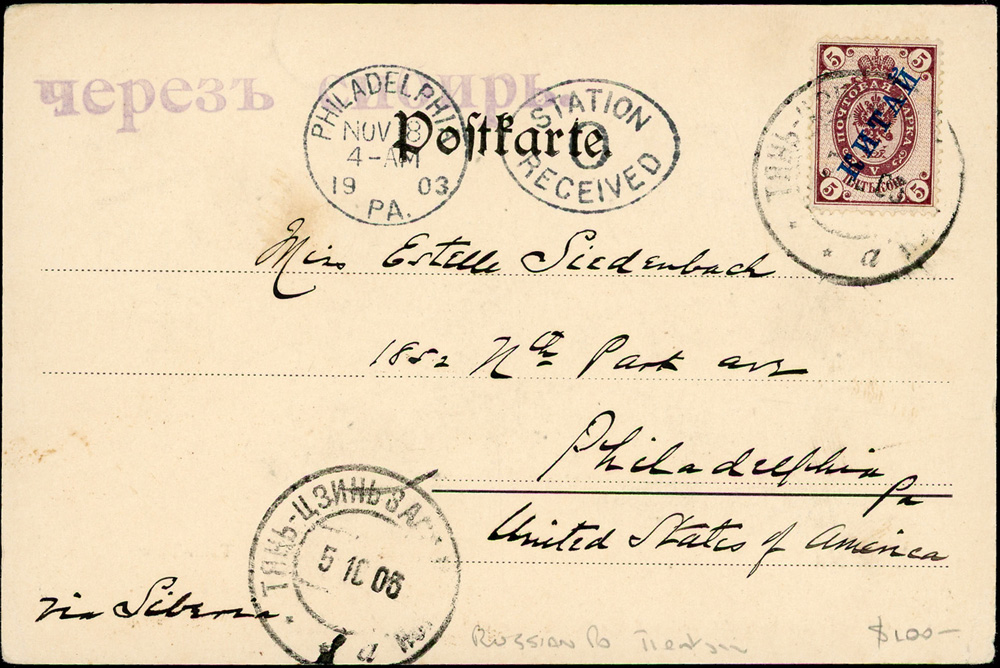 черезъ сибирь
PHILADELPHIA
NOV 8
4-AM
19 03
PA.
STATION
O
RECEIVED
Postkarte.
5 5
ПОЧТОВАЯ МАРКА
КИТАЙ
5 5
ТЯНЬ-
* * а
Miss Estelle Siedenbach
1852 Nth Park ave
Philadelphia
Pa
United States of America
ТЯНЬ-ЦЗИНЬ ЗАС
5 10 06
* а
via Siberia
Russian Po Tientsin
$1.00-